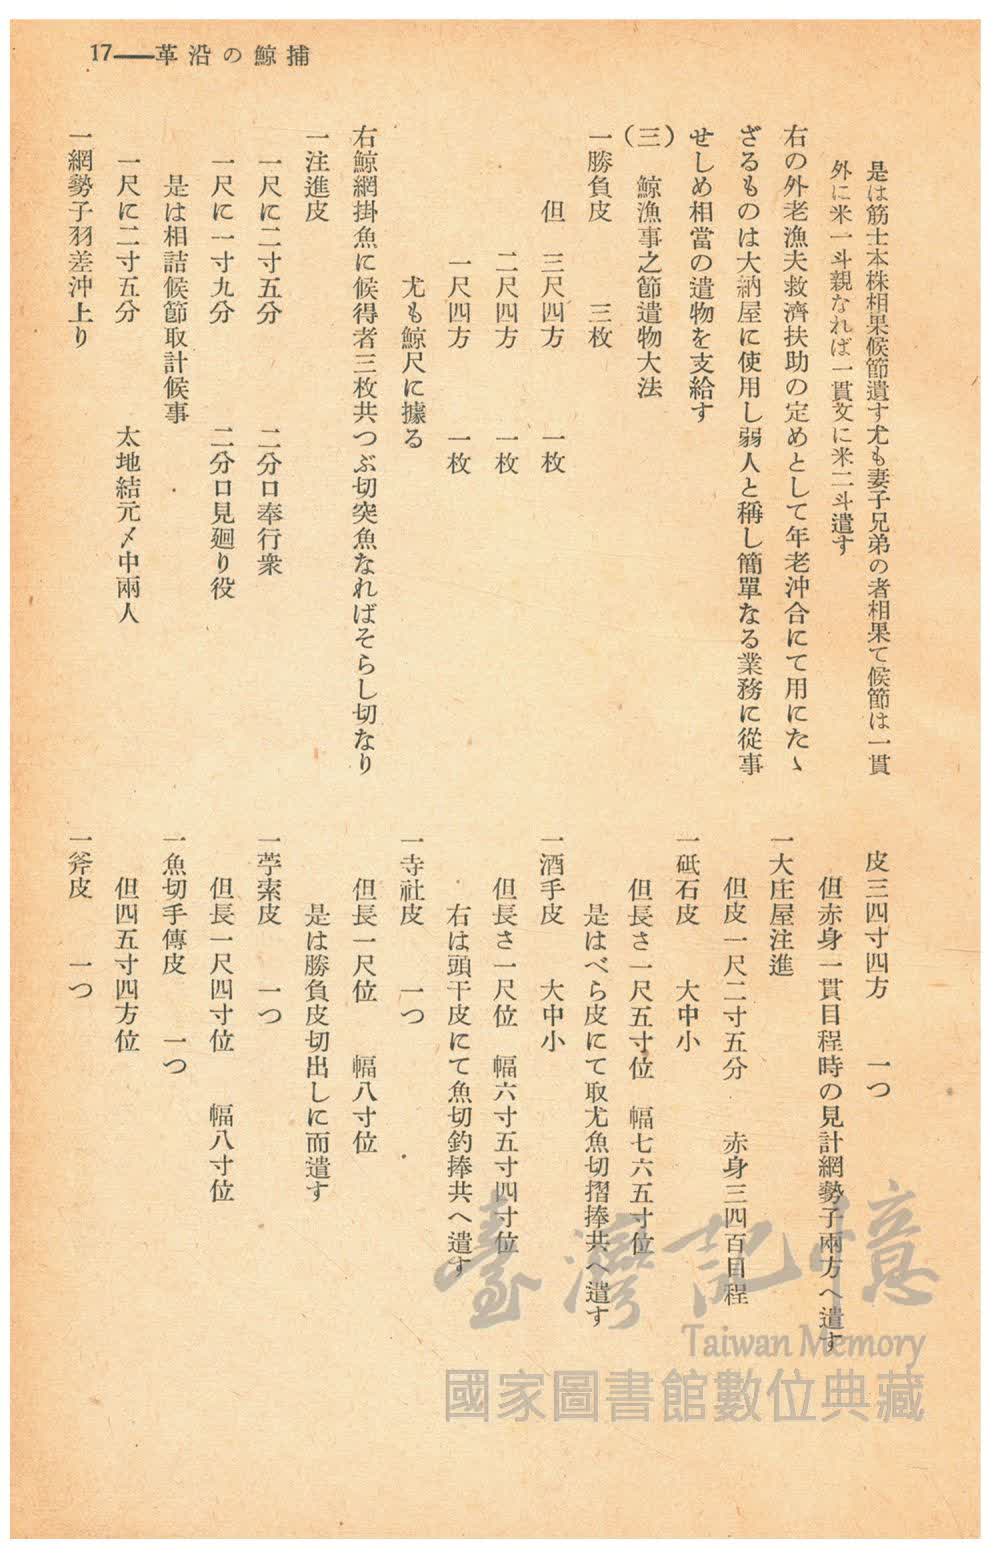 捕鯨の沿革――17
是は筋士本株相果候節遺す尤も妻子兄弟の者相果て候節は一貫
外に米一斗親なれば一貫文に米二斗遺す
右の外老漁夫救濟扶助の定めとして年老沖合にて用にたゝ
ざるものは大納屋に使用し弱人と稱し簡單なる業務に從事
せしめ相當の遺物を支給す
(三) 鯨漁事之節遺物大法
一勝負皮 三枚
但 三尺四方 一枚
二尺四方 一枚
一尺四方 一枚
尤も鯨尺に據る
右鯨網掛魚に候得者三枚共つぶ切突魚なればそらし切なり
一注進皮
一尺に二寸五分 二分口奉行衆
一尺に一寸九分 二分口見廻り役
是は相詰候節取計候事
一尺に二寸五分 太地結元〆中兩人
一網勢子羽差沖上り
皮三四寸四方 一つ
但赤身一貫目程時の見計網勢子兩方へ遺す
一大庄屋注進
但皮一尺二寸五分 赤身三四百目程
一砥石皮 大中小
但長さ一尺五寸位 幅七六五寸位
是はべら皮にて取尤魚切摺捧共へ遺す
一酒手皮 大中小
但長さ一尺位 幅六寸五寸四寸位
右は頭干皮にて魚切釣捧共へ遺す
一寺社皮 一つ
但長一尺位 幅八寸位
是は勝負皮切出しに而遺す
一苧索皮 一つ
但長一尺四寸位 幅八寸位
一魚切手傳皮 一つ
但四五寸四方位
一斧皮 一つ
臺灣記憶
Taiwan Memory
國家圖書館數位典藏